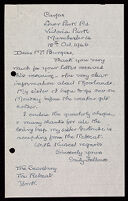 Burfas
Lower Park Rd
Victoria Park
Manchester 14
18th Oct. 1966
Dear Mr Burgess,
Thank you very
much for your letter received
this morning - the very clear
information about
My sister & I hope to go there on
Monday before the weather gets
I enclose the quarterly cheque,
& many thanks for all the
loving help my sister Gertrude is
receiving from The Retreat.
With kindest regards
Sincerely yours
Emily
The Secretary
The Retreat
York